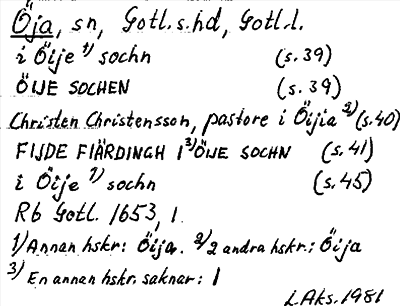 Öja, sn, Gotl. s. hd, Gotl. l.
i Öije 1) sochn (s. 39)
ÖIJE SOCHEN (s. 39)
Christen Christensson, pastore i Öijia 2) (s. 40)
FIJDE FIÄRDINGH I 3) ÖIJE SOCHN (s. 41)
i Öije 1) sochn (s. 45)
Rb Gotl. 1653, 1.
1) Annan hskr: Öija. 2) 2 andra hskr: Öija
3) En annan hskr. saknar: I
L Aks. 1981